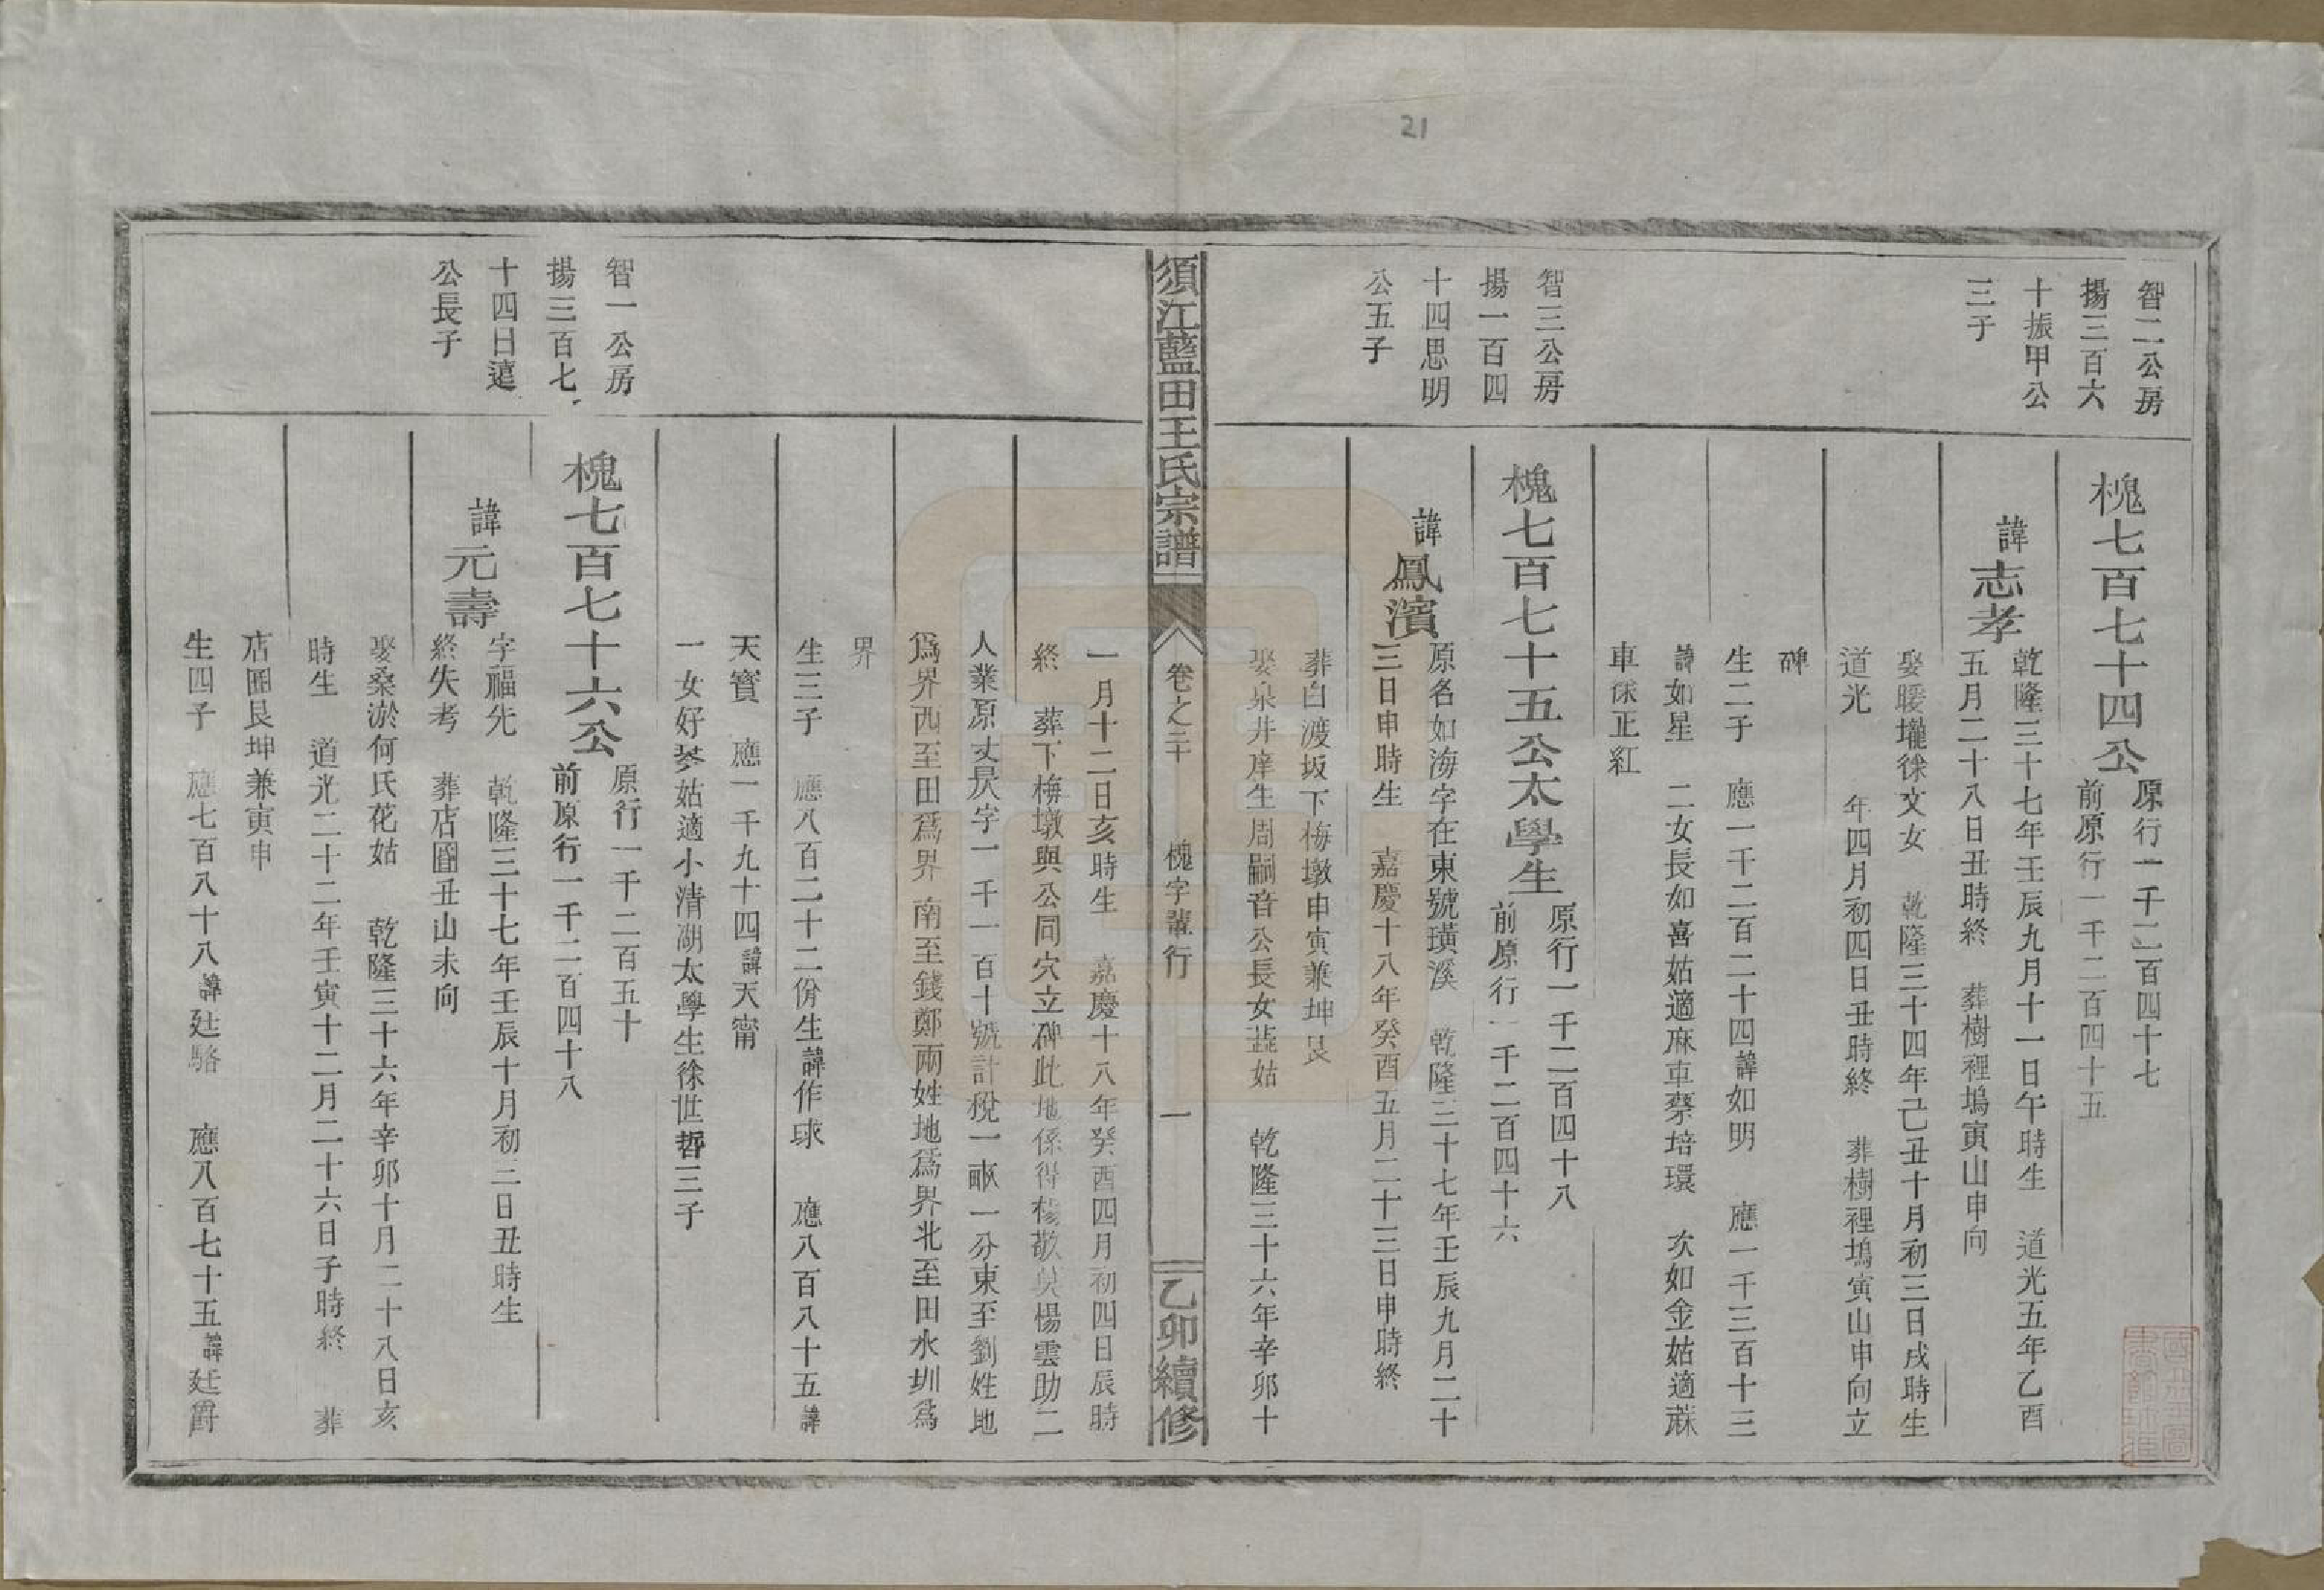 21
智二公房
揚三百六
十振甲公
三子
槐七百七十四公
原行一千二百四十七
前原行一千二百四十五
諱志孝
乾隆三十七年壬辰九月十一日午時生 道光五年乙酉
五月二十八日丑時終 葬樹裡塢寅山申向
娶暖壠徐文女 乾隆三十四年己丑十月初三日戌時生
道光 年四月初四日丑時終 葬樹裡塢寅山申向立
碑
生二子 應一千二百二十四諱如明 應一千三百十三
諱如星 二女長如喜姑適麻車蔡培環 次如金姑適蔴
車徐正紅
智三公房
揚一百四
十四思明
公五子
槐七百七十五公太學生
原行一千二百四十八
前原行一千二百四十六
諱鳳濱
原名如海字在東號璜溪 乾隆三十七年壬辰九月二十
三日申時生 嘉慶十八年癸酉五月二十三日申時終
葬白渡坂下梅墩申寅兼坤艮
娶泉井庠生周嗣音公長女 姑 乾隆三十六年辛卯十
須江藍田王氏宗譜
卷之三十 槐字輩行 一
乙卯續修
一月十二日亥時生 嘉慶十八年癸酉四月初四日辰時
終 葬下梅墩與公同穴立碑此地係得楊敬 楊雲助二
人業原丈昃字一千一百十號計稅一畝一分東至劉姓地
爲界西至田爲界南至錢鄭兩姓地爲界北至田水圳爲
界
生三子 應八百二十二份生諱作球 應八百八十五諱
天寶 應一千九十四諱天甯
一女好 姑適小清湖太學生徐世哲三子
智一公房
揚三百七
十四日遠
公長子
槐七百七十六公
原行一千二百五十
前原行一千二百四十八
諱元壽
字福先 乾隆三十七年壬辰十月初三日丑時生
終失考 葬店圖丑山未向
娶桑淤何氏花姑 乾隆三十六年辛卯十月二十八日亥
時生 道光二十二年壬寅十二月二十六日子時終 葬
店 艮坤兼寅申
生四子 應七百八十八諱廷駱 應八百七十五諱廷爵